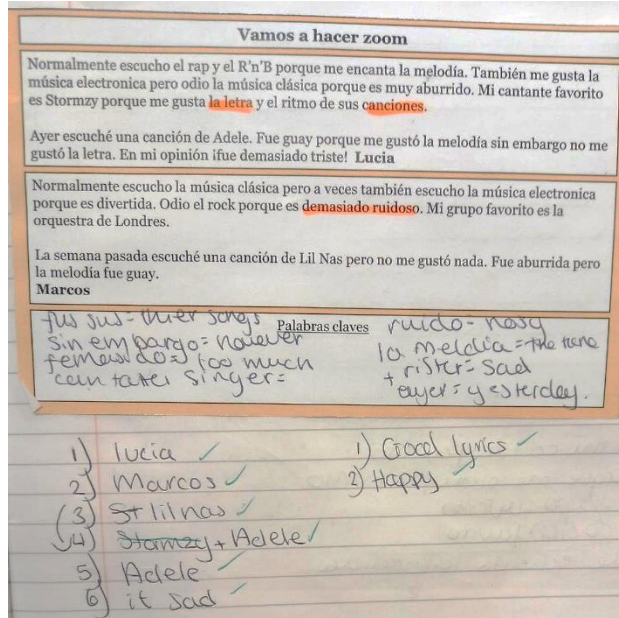 Vamos a hacer zoom
Normalmente escucho el rap y el R'n'B porque me encanta la melodía. También me gusta la
música electronica pero odio la música clásica porque es muy aburrido. Mi cantante favorito
es Stormzy porque me gusta la letra y el ritmo de sus canciones.
Ayer escuché una canción de Adele. Fue guay porque me gustó la melodía sin embargo no me
gustó la letra. En mi opinión ¡fue demasiado triste! Lucia
Normalmente escucho la música clásica pero a veces también escucho la música electronica
porque es divertida. Odio el rock porque es demasiado ruidoso. Mi grupo favorito es la
orquestra de Londres.
La semana pasada escuché una canción de Lil Nas pero no me gustó nada. Fue aburrida pero
la melodía fue guay.
Marcos
Palabras claves
sus = thier songs
sin embargo = however
= too much
singer =
ruido - nosy
la meldia = the tune
trister = sad
ayer = yesterday.
1) lucia
2) Marcos
3) St lil nas
4) Stormzy + Adele
5) Adele
6) it sad
1) Good lyrics
2) Happy